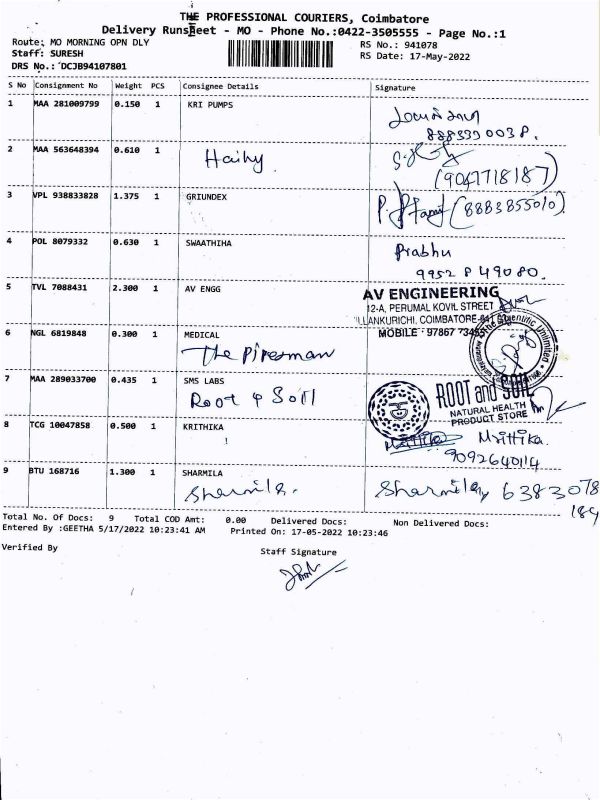 THE PROFESSIONAL COURIERS, Coimbatore
Delivery Runsheet - MO - Phone No.:0422-3505555 - Page No.:1
Route: MO MORNING OPN DLY
RS No.: 941078
Staff: SURESH
RS Date: 17-May-2022
DRS No.: DCJB94107801
S No Consignment No Weight PCS Consignee Details Signature
1 MAA 281009799 0.150 1 KRI PUMPS
2 MAA 563648394 0.610 1
(9047718187)
3 VPL 938833828 1.375 1 GRIUNDEX
(8883855010)
4 POL 8079332 0.630 1 SWAATHIHA
Prabhu
5 TVL 7088431 2.300 1 AV ENGG
AV ENGINEERING
12-A, PERUMAL KOVIL STREET
COIMBATORE
MOBILE
6 NGL 6819848 0.300 1 MEDICAL
The
7 MAA 289033700 0.435 1 SMS LABS
Root & Soil
ROOT and SOIL
NATURAL HEALTH
PRODUCT STORE
8 TCG 10047858 0.500 1 KRITHIKA
9092640114
9 BTU 168716 1.300 1 SHARMILA
Sharmila.
Sharmila 6383078
184
Total No. Of Docs: 9 Total COD Amt: 0.00 Delivered Docs: Non Delivered Docs:
Entered By :GEETHA 5/17/2022 10:23:41 AM Printed On: 17-05-2022 10:23:46
Verified By
Staff Signature